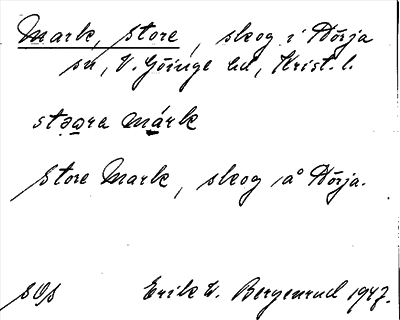 Mark, store, skog i Nörja
sn, V. Göinge hd, Krist. l.
stəɷra márk
store Mark, skog å Nörja.
sOs Erik W. Bergenrud 1947.